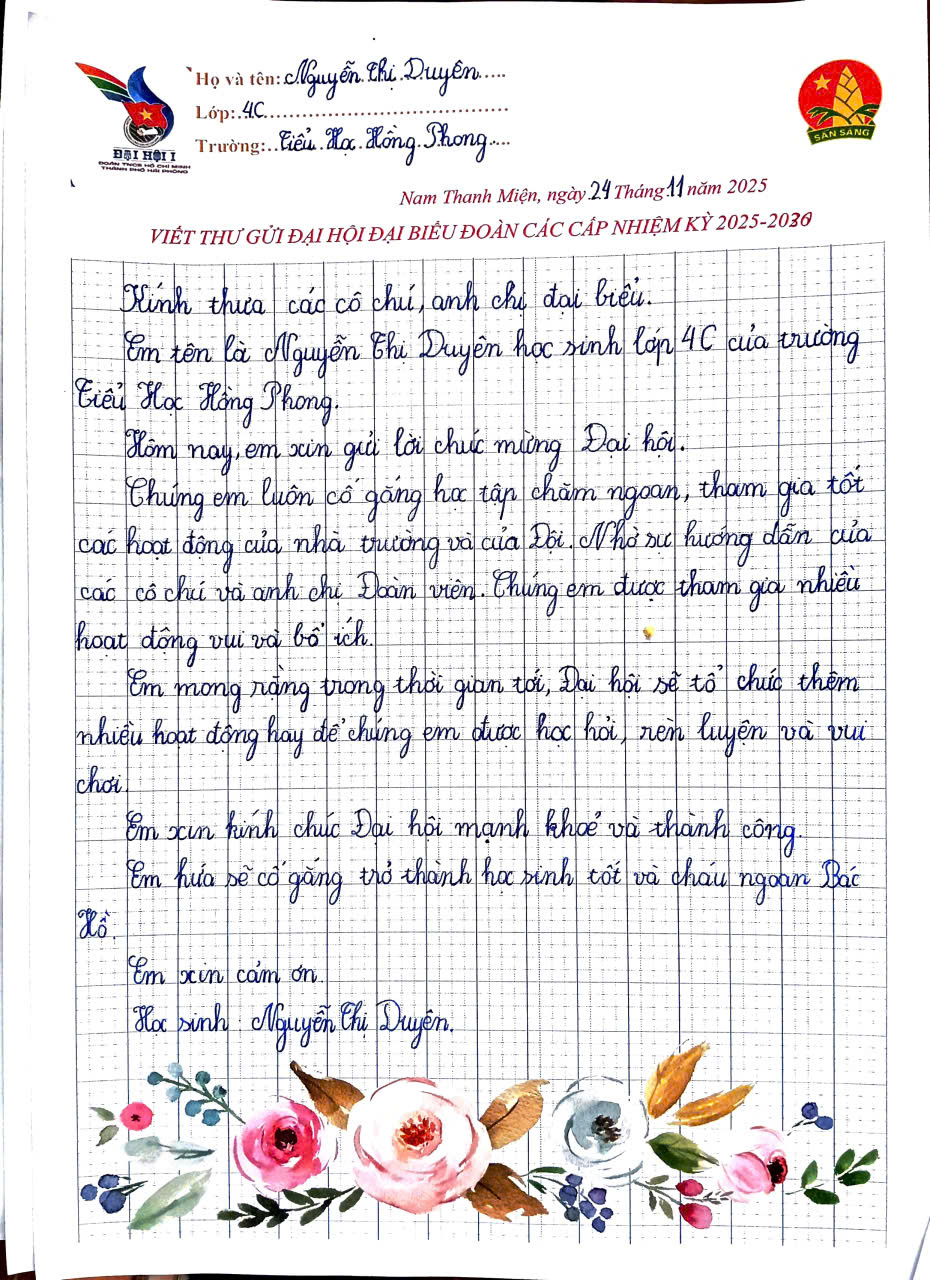 Họ và tên: Nguyễn Thị Duyên
Lớp: 4C
Trường: Tiểu Học Hồng Phong
ĐẠI HỘI I
ĐOÀN TNCS HỒ CHÍ MINH
THÀNH PHỐ HẢI PHÒNG
SẴN SÀNG
Nam Thanh Miện, ngày 24 Tháng 11 năm 2025
VIẾT THƯ GỬI ĐẠI HỘI ĐẠI BIỂU ĐOÀN CÁC CẤP NHIỆM KỲ 2025-2030
Kính thưa các cô chú, anh chị đại biểu.
Em tên là Nguyễn Thị Duyên học sinh lớp 4C của trường
Tiểu Học Hồng Phong.
Hôm nay, em xin gửi lời chúc mừng Đại hội.
Chúng em luôn cố gắng học tập chăm ngoan, tham gia tốt
các hoạt động của nhà trường và của Đội. Nhờ sự hướng dẫn của
các cô chú và anh chị Đoàn viên. Chúng em được tham gia nhiều
hoạt động vui và bổ ích.
Em mong rằng trong thời gian tới, Đại hội sẽ tổ chức thêm
nhiều hoạt động hay để chúng em được học hỏi, rèn luyện và vui
chơi.
Em xin kính chúc Đại hội mạnh khoẻ và thành công.
Em hứa sẽ cố gắng trở thành học sinh tốt và cháu ngoan Bác
Hồ.
Em xin cảm ơn.
Học sinh: Nguyễn Thị Duyên.